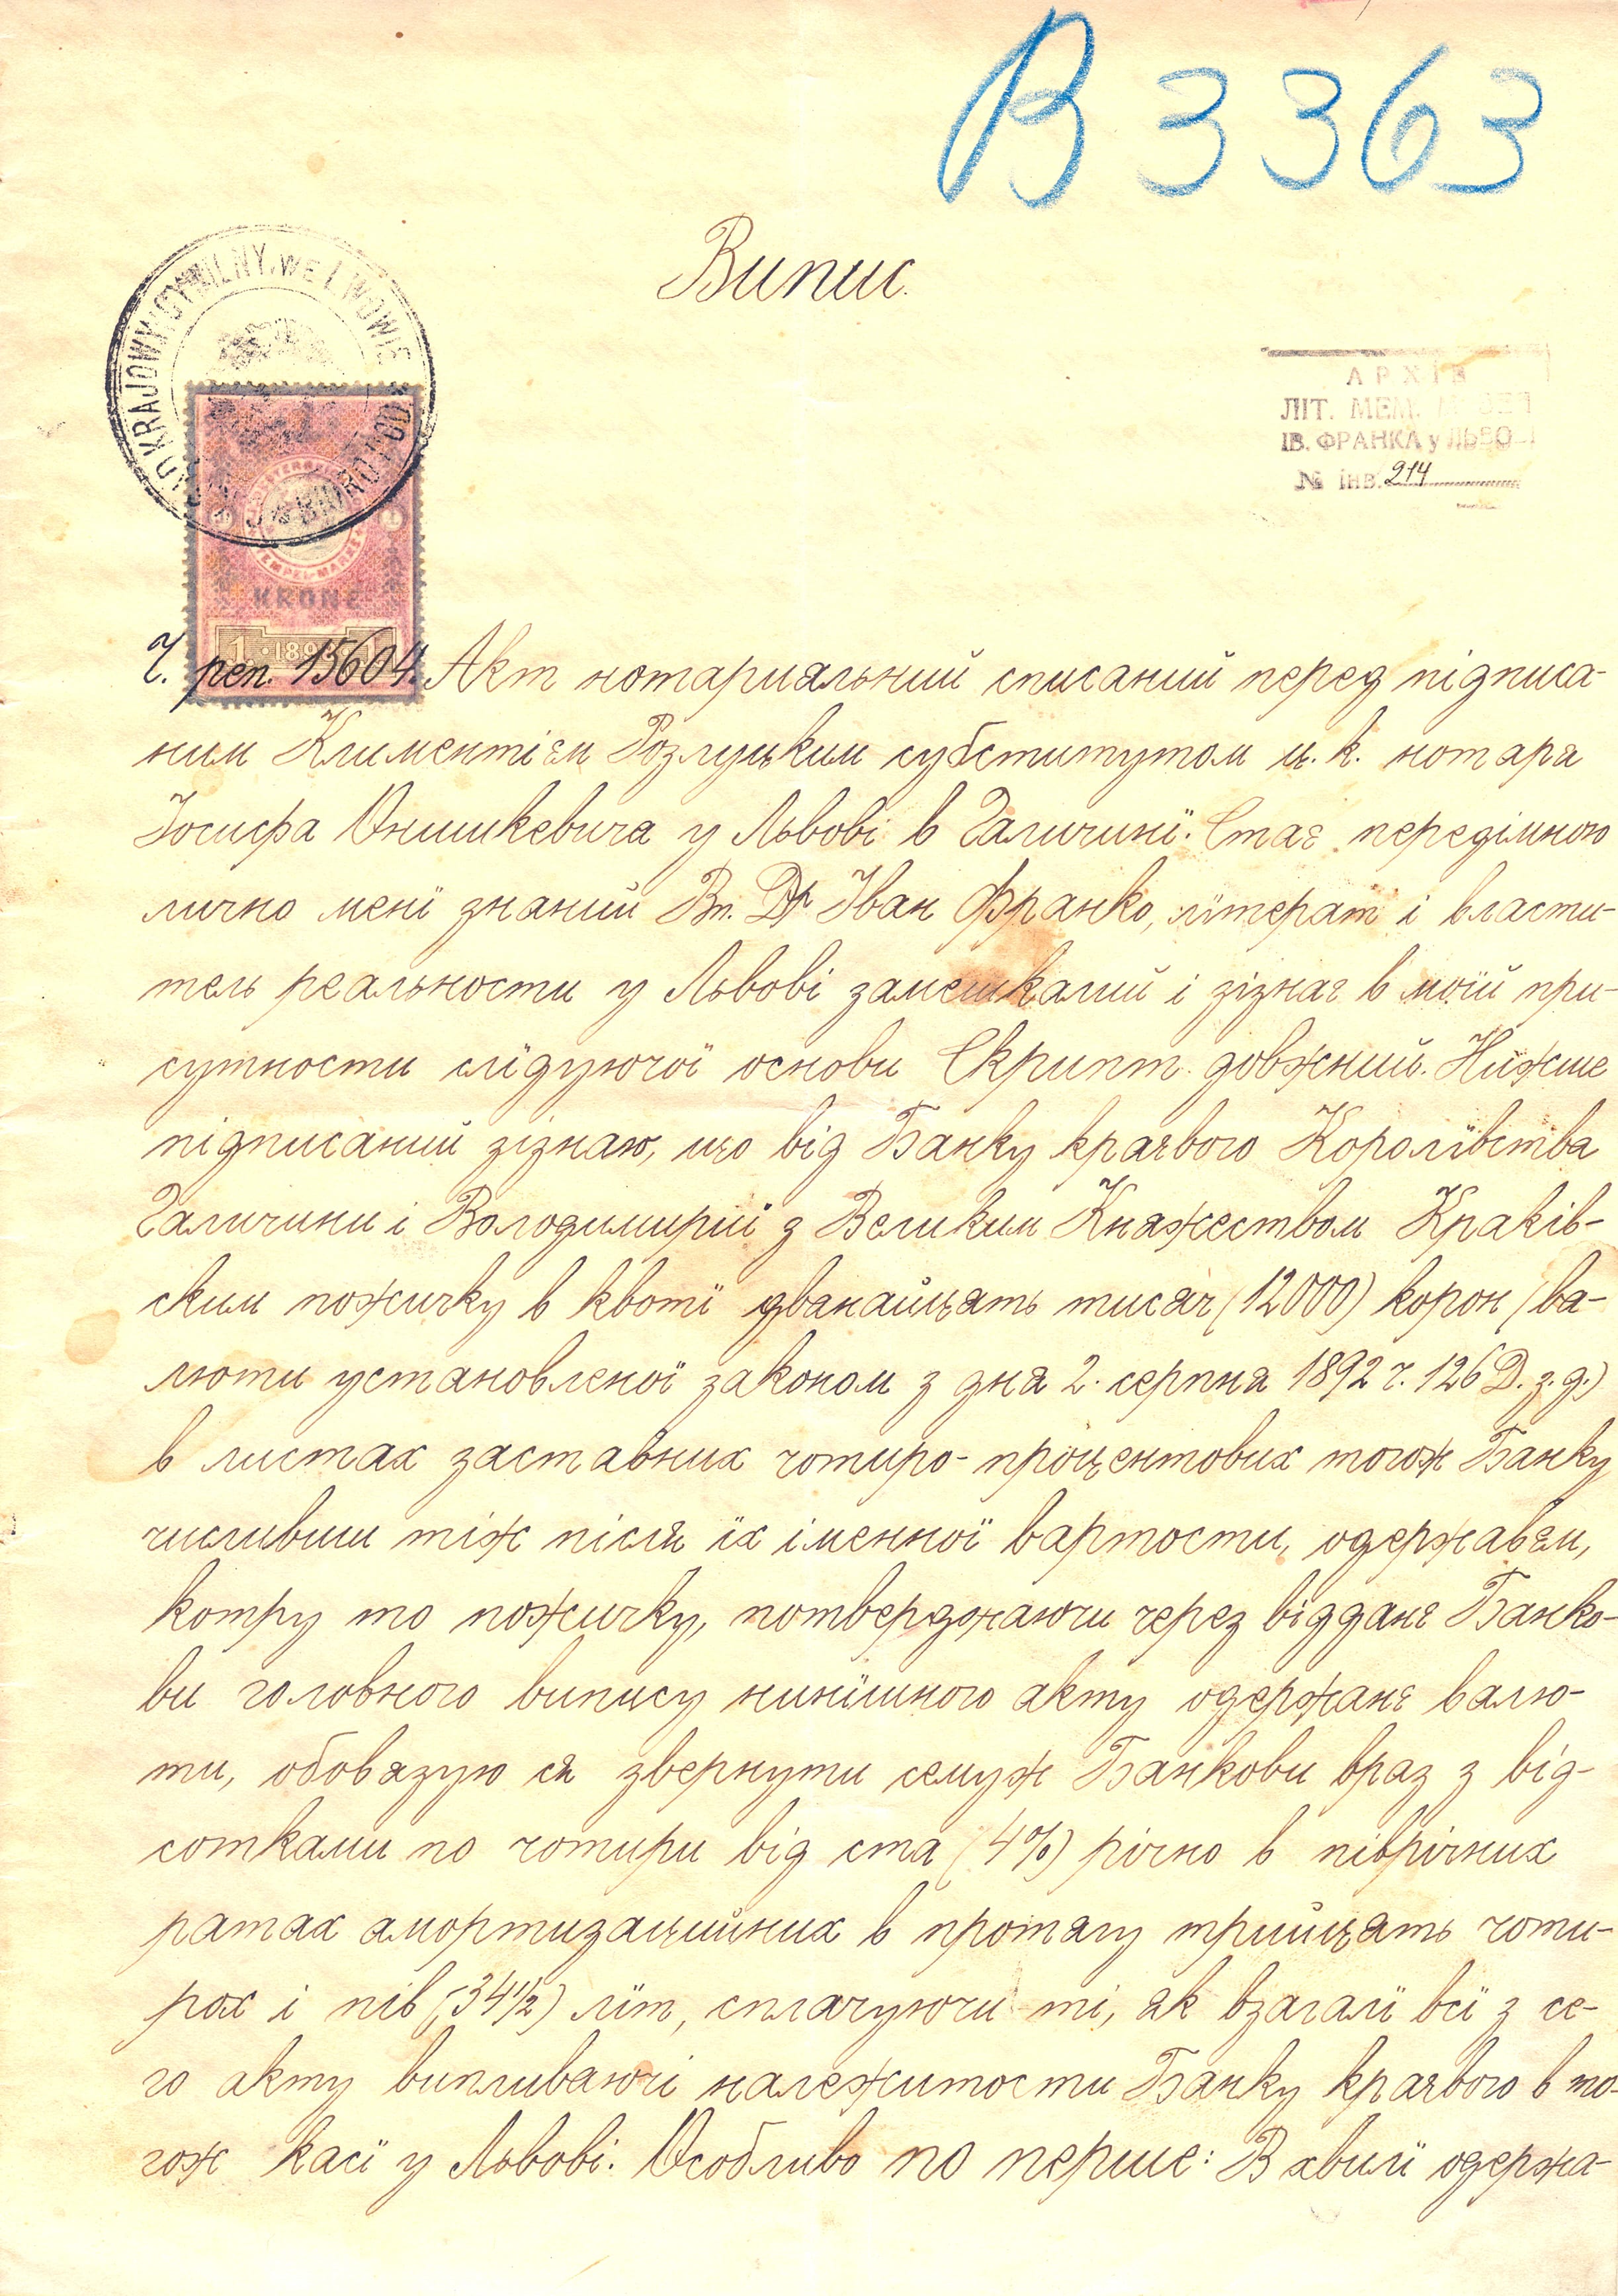 В 3363
Випис.
KRAJOWY CYWILNY WE LWOWIE
АРХІВ
ЛІТ. МЕМ. МУЗЕЮ
ІВ. ФРАНКА у ЛЬВОВІ
№ інв. 214
KRONE
1 189 1
Ч. реп. 15604. Акт нотарияльний списаний перед підписа-
ним Климентієм Розлуцким субститутом ц. к. нотаря
Іосифа Онишкевича у Львові в Галичинї. Стає передімною
лично менї знаний Вп. Dr Іван Франко, лїтерат і власти-
тель реальности у Львові замешкалий і зізнає в моїй при-
сутности слїдуючої основи Скрипт довжний. Низше
підписаний зізнаю, що від Банку краєвого Королївства
Галичини і Володимириї з Великим Княжеством Краків-
ским пожичку в квотї дванайцять тисяч (12000) корон (ва-
люти установленої законом з дня 2. серпня 1892 ч. 126 D. з. д.)
в листах заставних чотиро-процентових тогож Банку
числивши тіж після їх іменної вартости, одержавєм,
котру то пожичку, потверджаючи через відданє Банко-
ви головного випису нинїшного акту одержанє валю-
ти, обовязую ся звернути семуж Банкови враз з від-
сотками по чотири від ста (4%) річно в піврічних
ратах амортизацийних в протягу трийцять чоти-
рох і пів (34½) лїт, сплачуючи ті, як взагалї всї з се-
го акту випливаючі належитости Банку краєвого в то-
гож касї у Львові. Особливо по перше: В хвилї одержа-